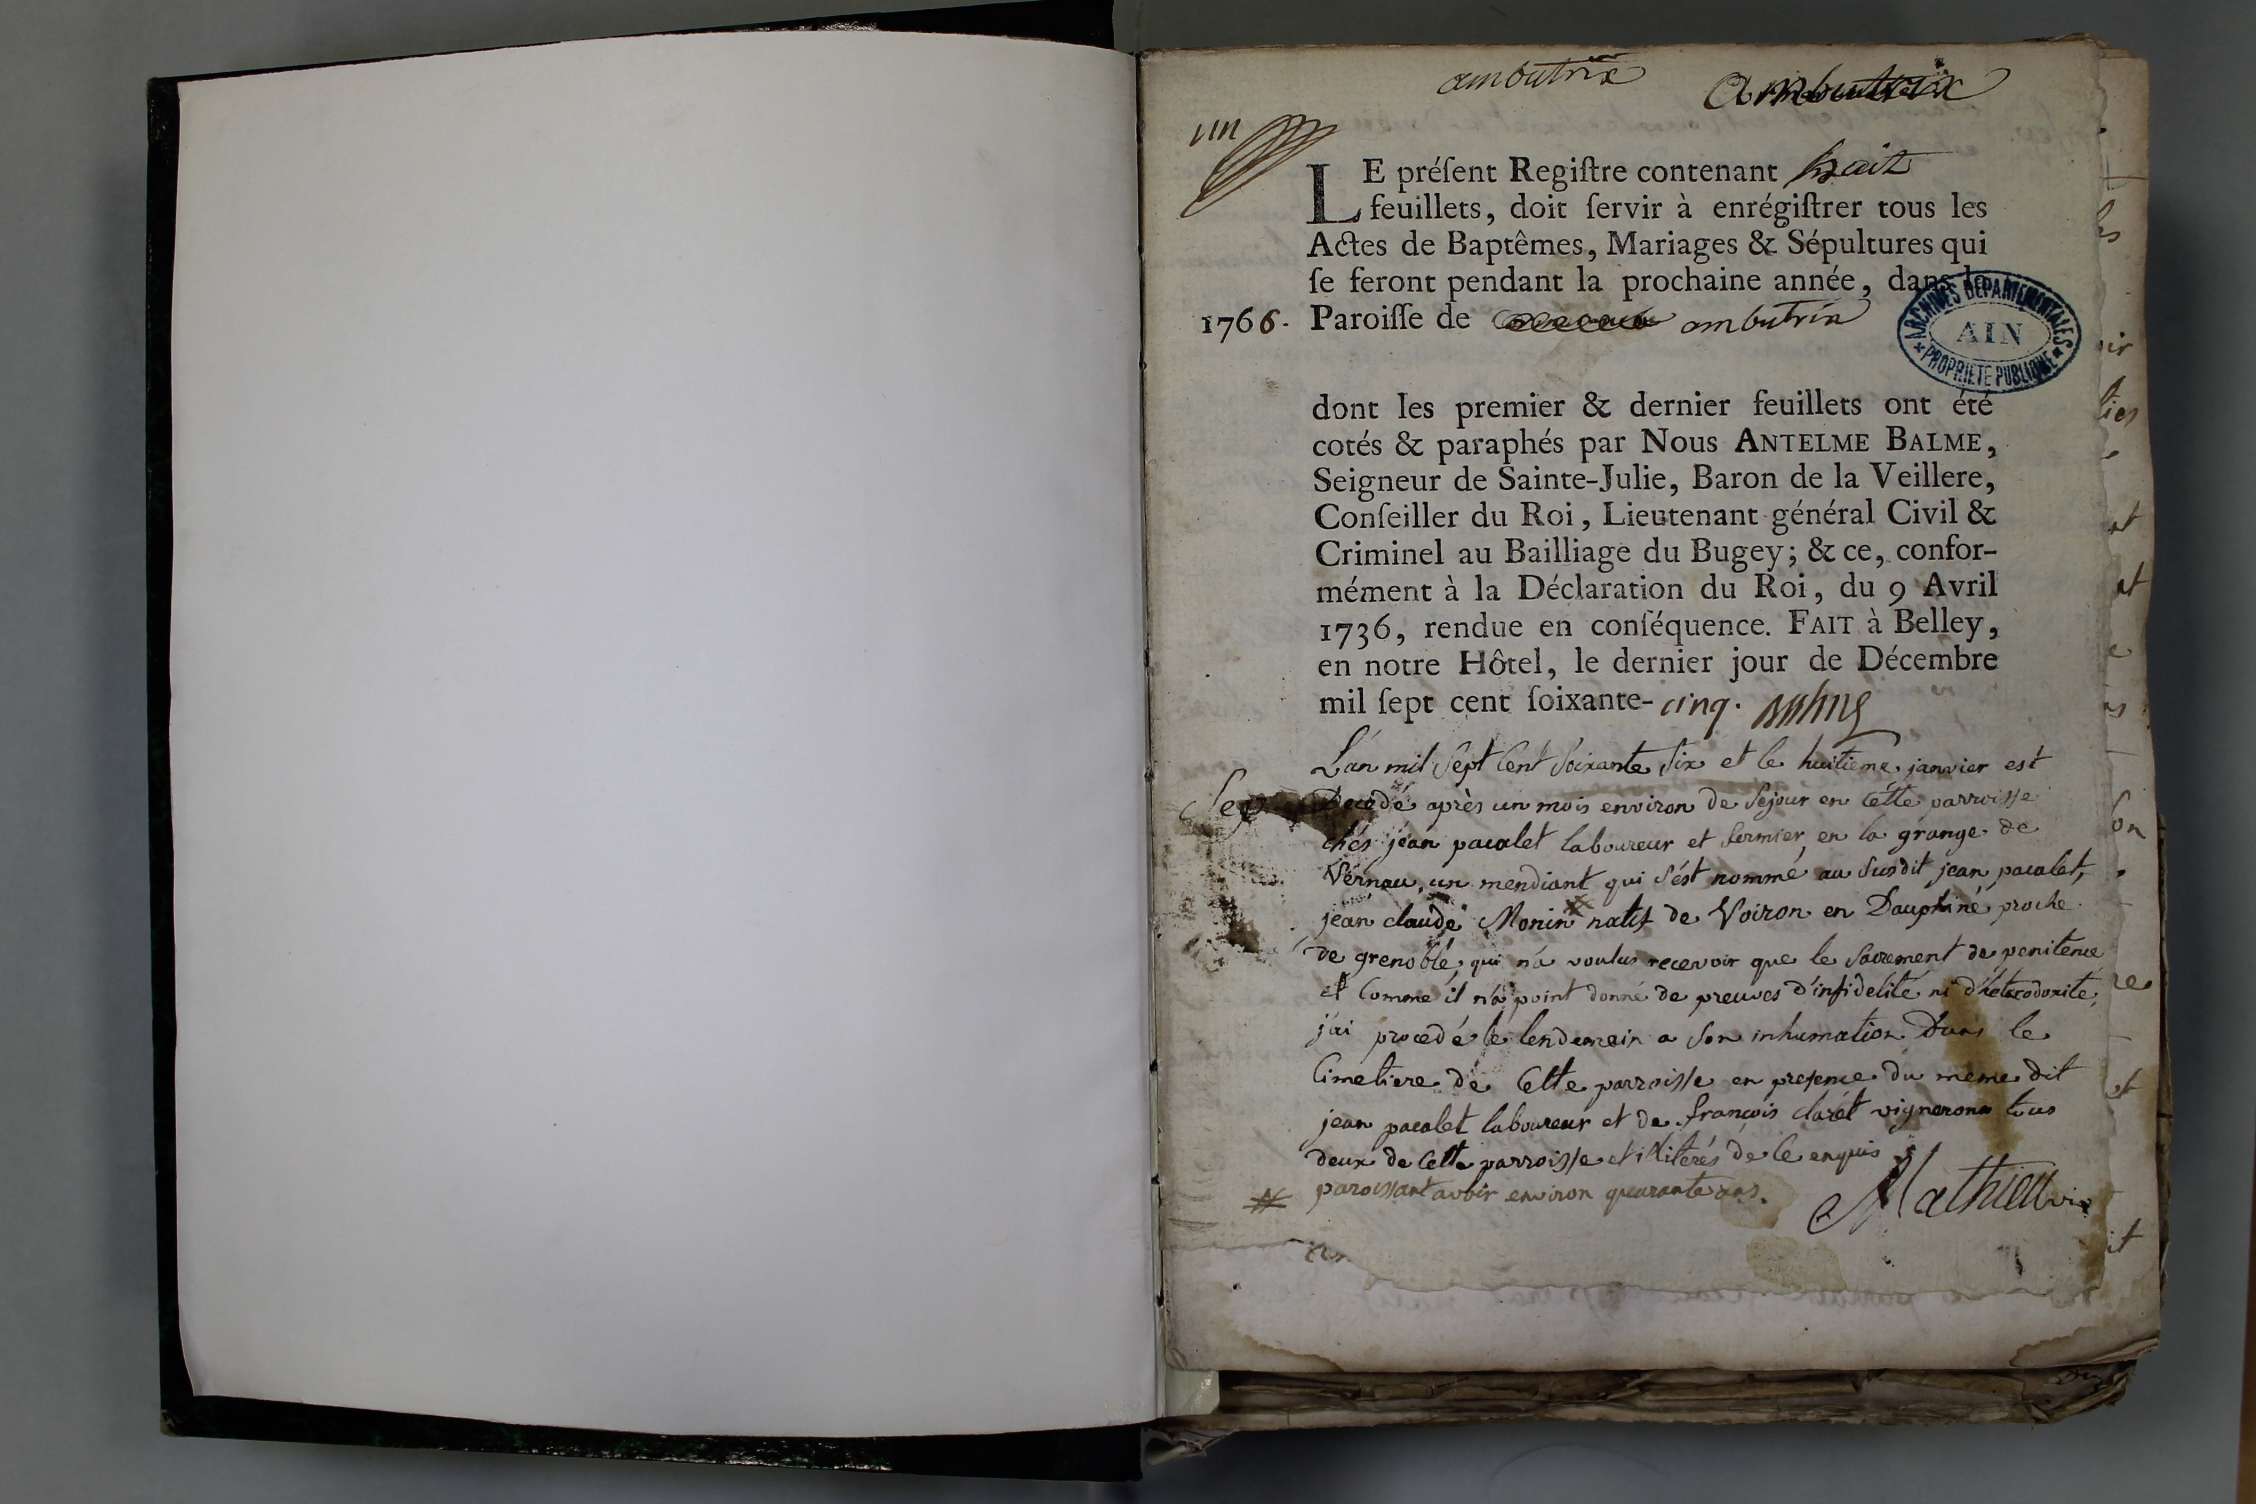 ambutrix
Ambutrix
un
LE préſent Regiſtre contenant huit
feuillets, doit ſervir à enrégiſtrer tous les
Actes de Baptêmes, Mariages & Sépultures qui
ſe feront pendant la prochaine année, dans la
1766. Paroiſſe de ambutrix
ARCHIVES DEPARTEMENTALES
AIN
PROPRIETE PUBLIQUE
dont les premier & dernier feuillets ont été
cotés & paraphés par Nous ANTELME BALME,
Seigneur de Sainte-Julie, Baron de la Veillere,
Conſeiller du Roi, Lieutenant général Civil &
Criminel au Bailliage du Bugey; & ce, confor-
mément à la Déclaration du Roi, du 9 Avril
1736, rendue en conſéquence. FAIT à Belley,
en notre Hôtel, le dernier jour de Décembre
mil ſept cent ſoixante-cinq. Balme
L'an mil Sept Cent Soixante Six et le huitieme janvier est
Sep
Decedé après un mois environ de Sejour en Cette parroisse
chés jean pacalet laboureur et fermier en la grange de
Vernau, un mendiant qui s'est nommé au Susdit jean pacalet,
jean claude Monin # natif de Voiron en Dauphiné proche
de grenoble, qui n'a voulus recevoir que le Sacrement de penitence
et Comme il n'a point donné de preuves d'infidelité ni d'heterodoxité,
j'ai procedé le lendemain a Son inhumation Dans le
Cimetiere de Cette parroisse en presence du meme dit
jean pacalet laboureur et de françois clarét vignerons tous
deux de Cette parroisse et illiterés de Ce enquis
# paroissant avoir environ quarante ans.
Mathieu vic